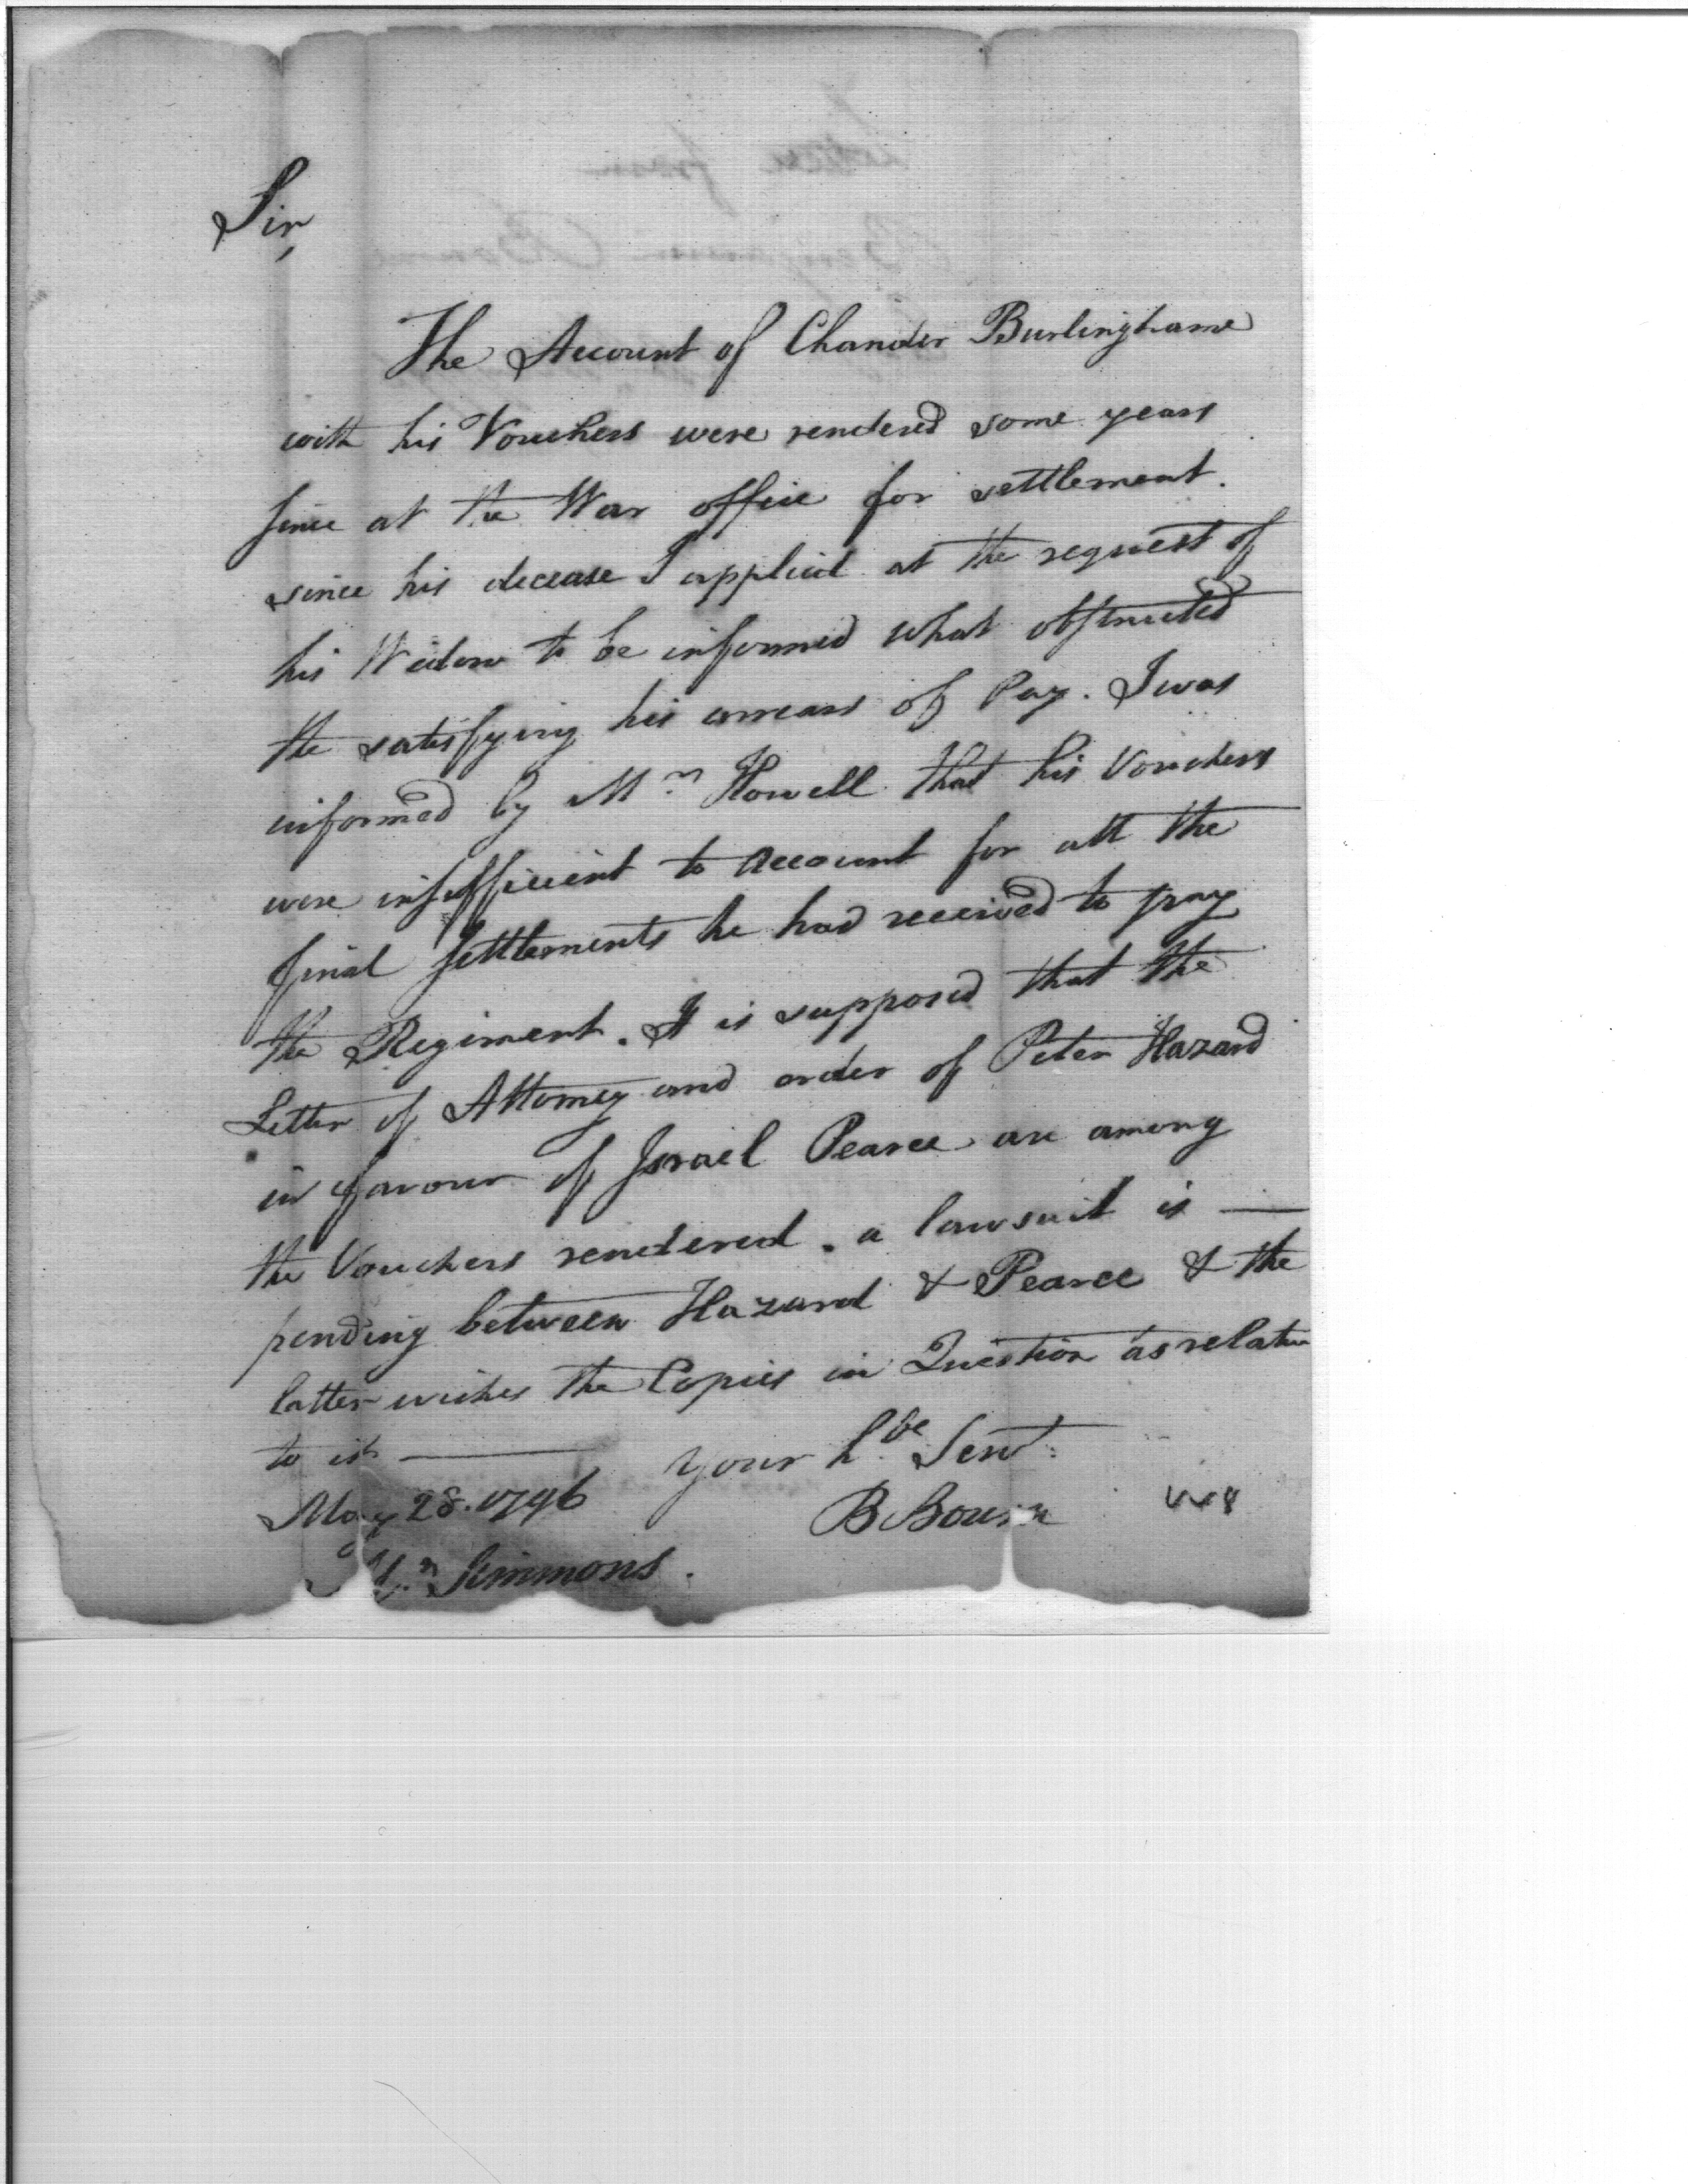 Sir,
The Account of Chander Burlinghame
with his Vouchers were rendered some years
since at the War office for settlement.
since his decease I applied at the request of
his Widow to be informed what obstructed
the satisfying his arrears of Pay. I was
informed by Mr Howell that his Vouchers
were insufficient to account for all the
final settlements he had received to pay
the Regiment. It is supposed that the
Letter of Attorney and order of Peter Hazard
in favour of Israel Pearce are among
the Vouchers rendered. a lawsuit is —
pending between Hazard & Pearce & the
latter wishes the Copies in Question as relative
to it — your hbe Servt.
May 28. 1796 B Bourn
Mr Simmons.